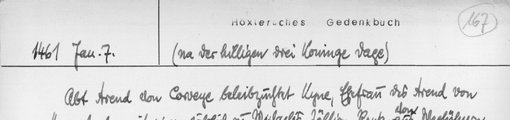 Höxtersches Gedenkbuch
167
1461 Jan. 7. (na der hilligen drei Koninge dage)
Abt Arend von Corveye beleibzuchtet Kyne, Ehefrau des Arend von